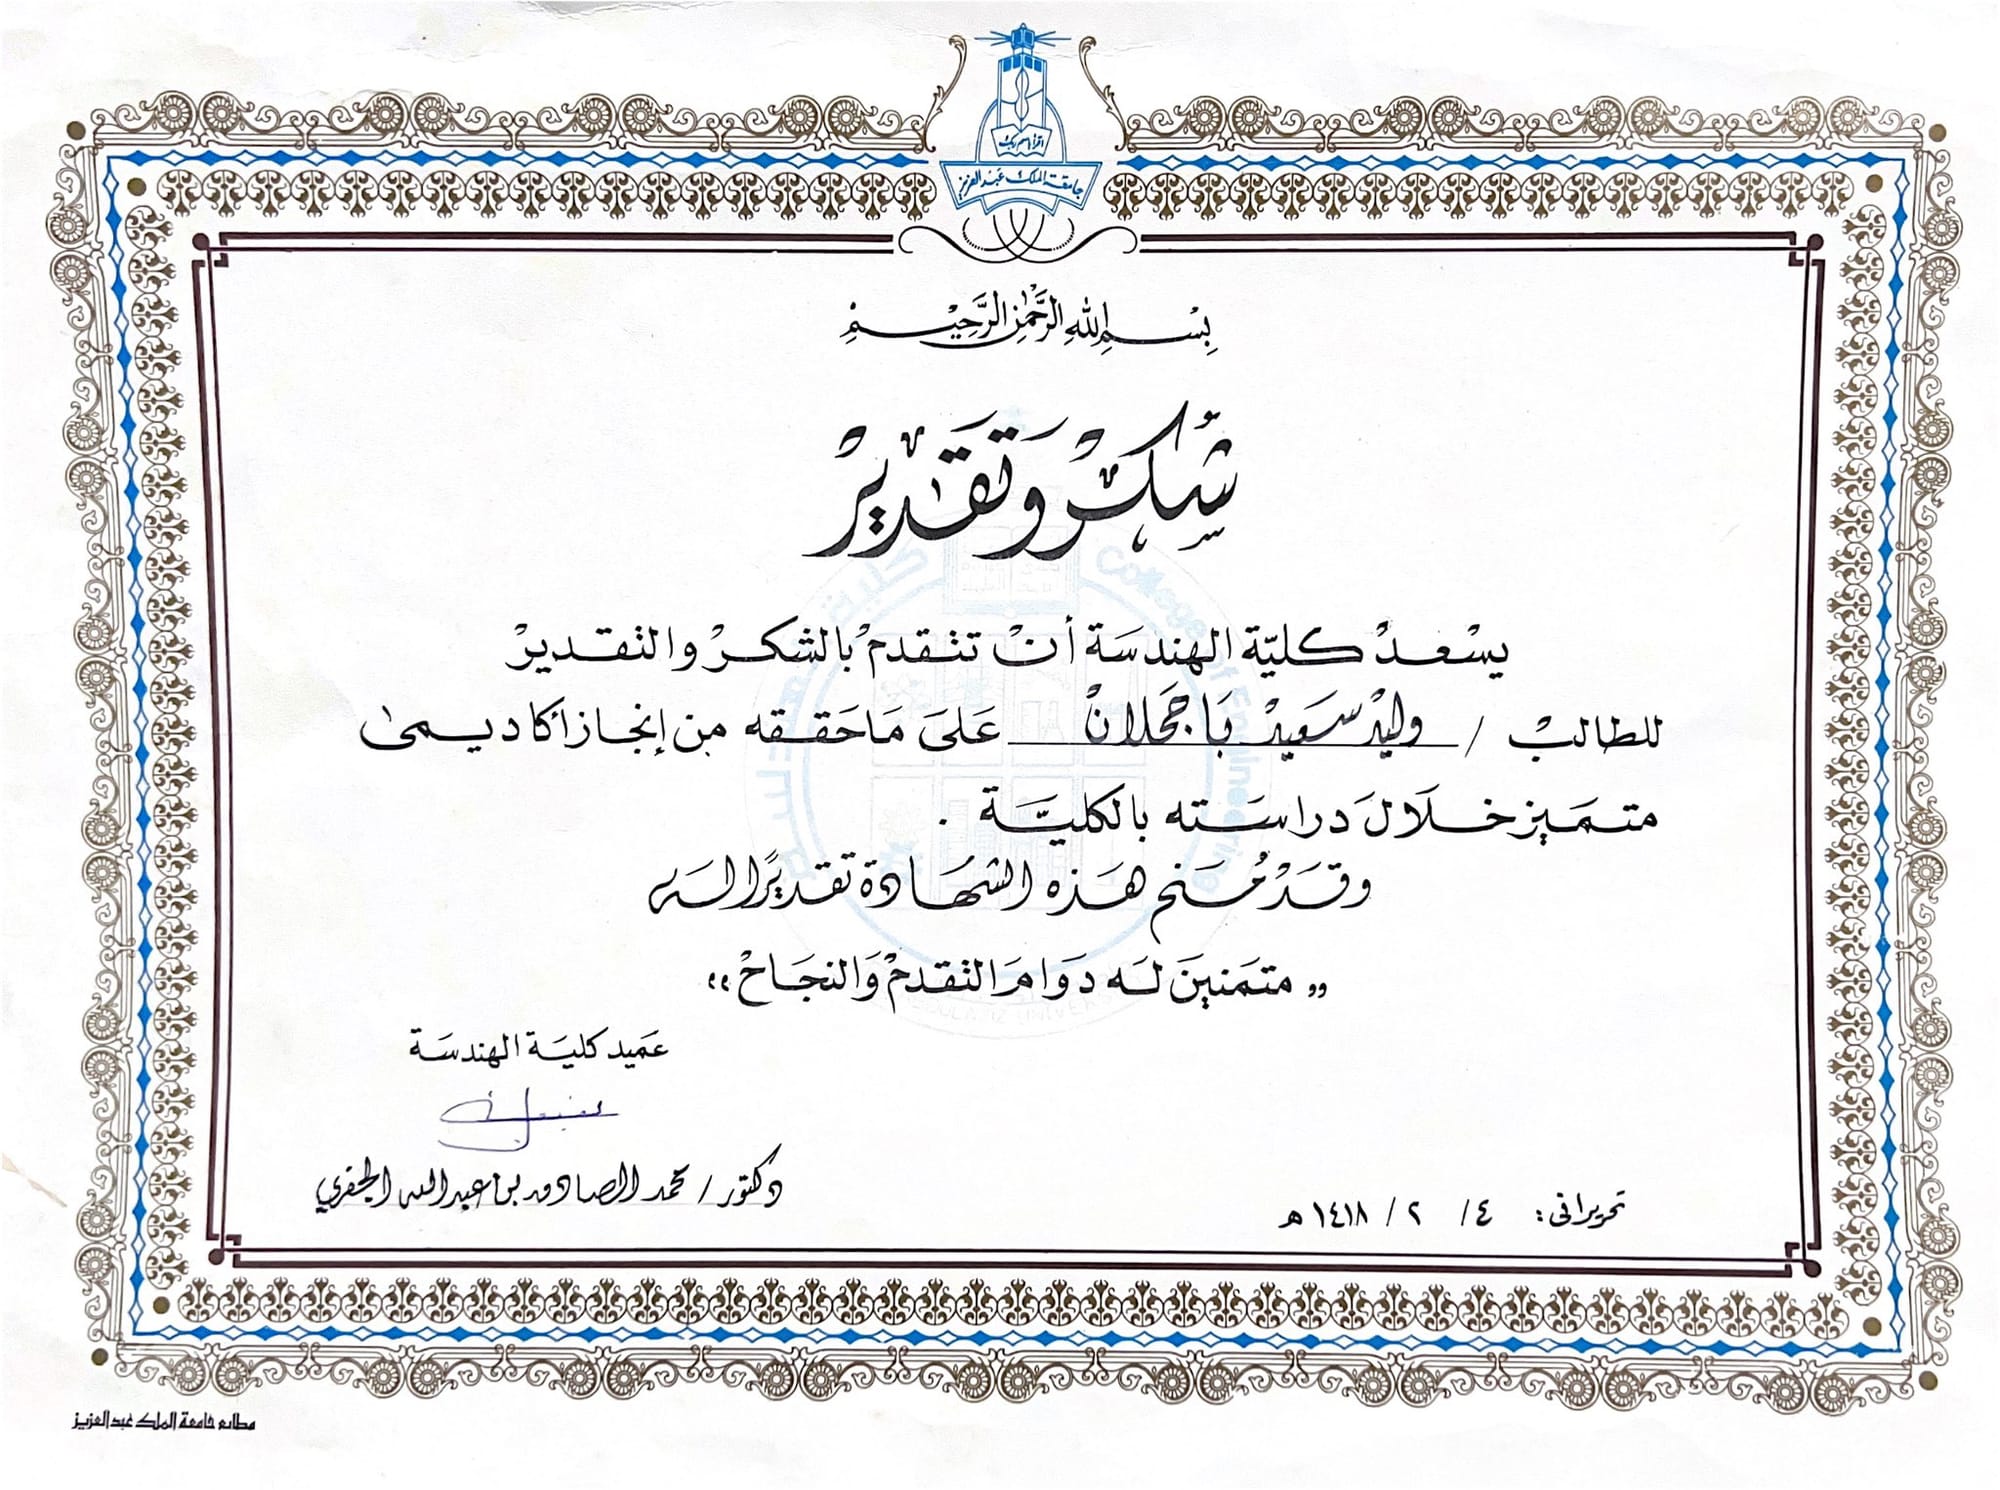 اقرأ باسم ربك
جامعة الملك عبد العزيز
بِسْمِ اللهِ الرَّحْمٰنِ الرَّحِيْمِ
شكر وتقدير
يسعد كلية الهندسة أن تتقدم بالشكر والتقدير
للطالب / وليد سعيد باجحلان على ما حققه من إنجاز أكاديمى
متميز خلال دراسته بالكلية .
وقد مُنح هذه الشهادة تقديرًا له
,, متمنين له دوام التقدم والنجاح ,,
عميد كلية الهندسة
دكتور / محمد الصادق بن عبدالله الجفري
تحريرا فى : ٤ / ٢ / ١٤١٨ هـ
College of Engineering
مطابع جامعة الملك عبدالعزيز